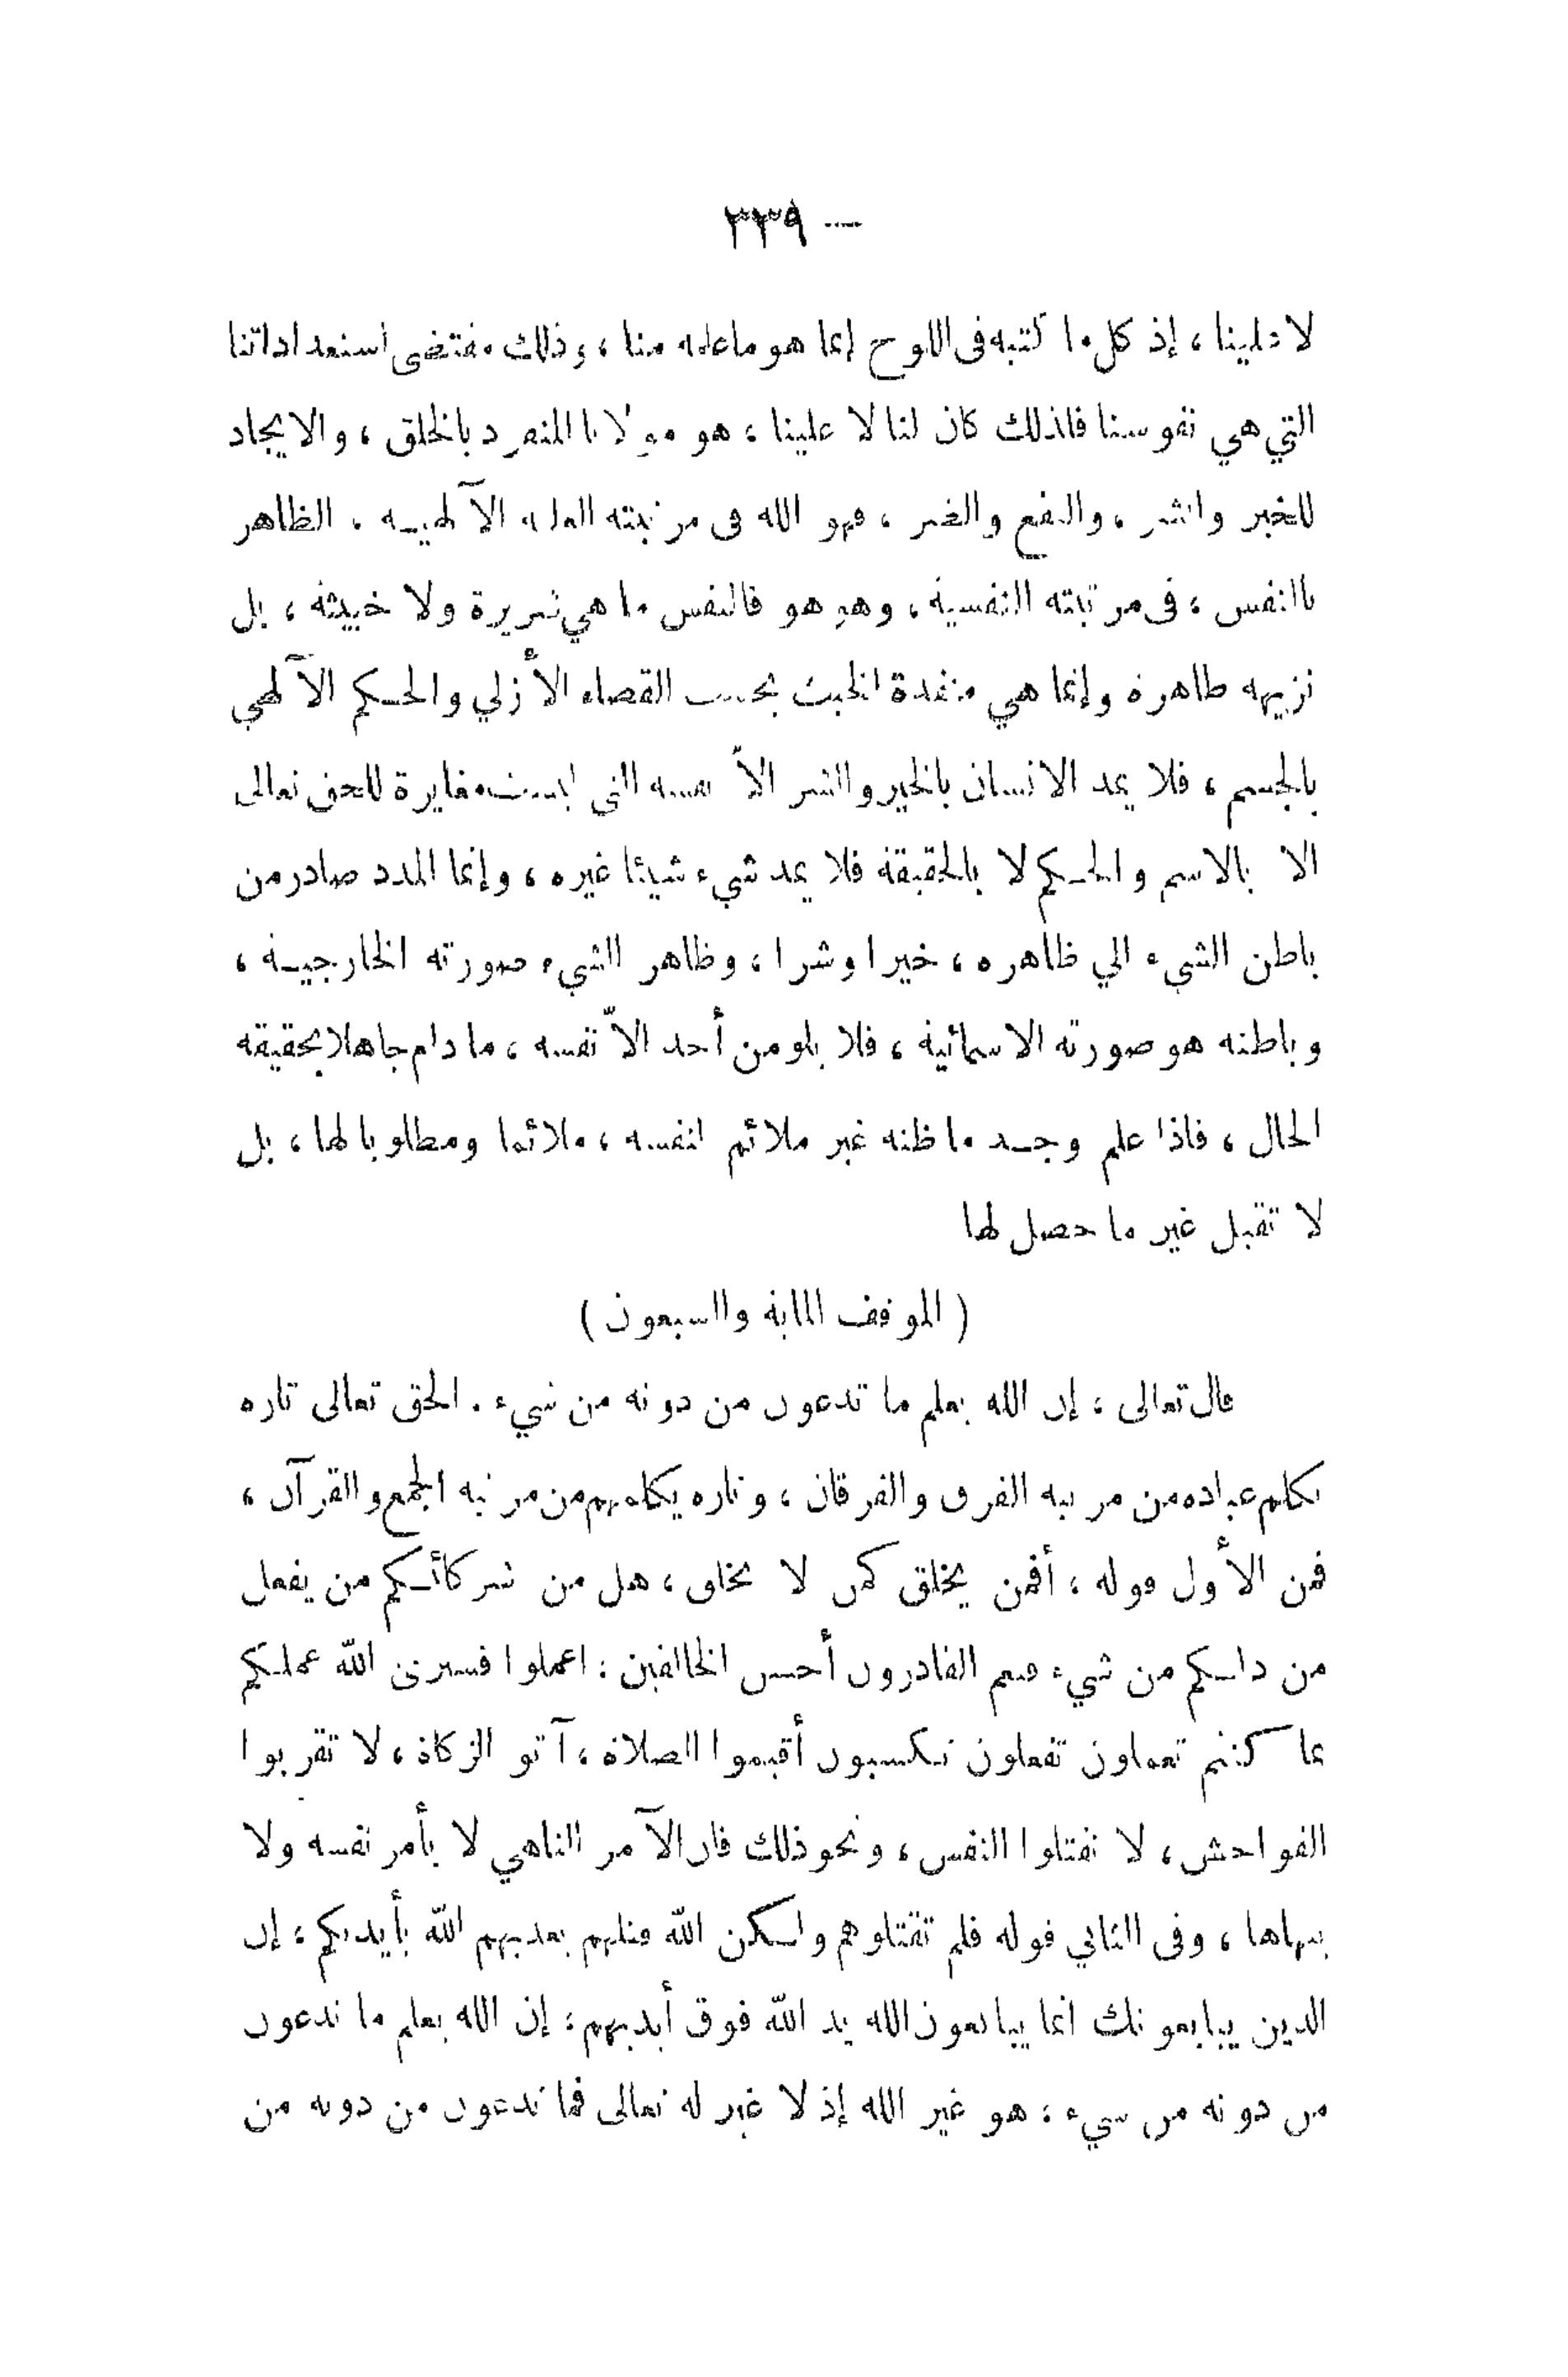 — ٣٣٩
لا علينا ، إذ كل ما كتبه فى اللوح إنما هو ما علمه منا ، وذلك مقتضى استعداداتنا
التي هي نفوسنا فلذلك كان لنا لا علينا ، هو مولانا المنفرد بالخلق ، والايجاد
للخير والشر ، والنفع والضر ، فهو الله فى مرتبته العلية الآلهيـة . الظاهر
بالنفس ، فى مرتبته النفسية ، وهو هو فالنفس ما هي شريرة ولا خبيثة ، بل
نزيهة طاهرة وإنما هي منفذة الخبث بحسب القضاء الأزلي والحـكم الآلهي
بالجسم ، فلا يمد الانسان بالخير والشر الاّ نفسه التي ليست مغايرة للحق تعالى
الا بالاسم والحـكم لا بالحقيقة فلا يمد شيء شيئا غيره ، وإنما المدد صادر من
باطن الشيء الي ظاهره ، خيرا وشرا ، وظاهر الشيء صورته الخارجيـة ،
وباطنه هو صورته الاسمائية ، فلا يلومن أحد الاّ نفسه ، ما دام جاهلا بحقيقة
الحال ، فاذا علم وجـد ما ظنه غير ملائم لنفسه ، ملائما ومطلوبا لها ، بل
لا تقبل غير ما حصل لها
( الموقف المائة والسبعون )
قال تعالى ، إن الله يعلم ما تدعون من دونه من شيء . الحق تعالى تارة
يكلم عباده من مرتبة الفرق والفرقان ، وتارة يكلمهم من مرتبة الجمع والقرآن ،
فمن الأول قوله ، أفمن يخلق كمن لا يخلق ، هل من شركائـكم من يفعل
من ذلـكم من شيء فنعم القادرون أحسن الخالقين : اعملوا فسيرى الله عملـكم
بما كنتم تعملون تفعلون تـكسبون أقيموا الصلاة ، آتو الزكاة ، لا تقربوا
الفواحش ، لا تقتلوا النفس ، ونحو ذلك فان الآمر الناهي لا يأمر نفسه ولا
ينهاها ، وفى الثاني قوله فلم تقتلوهم ولـكن الله قتلهم يعذبهم الله بأيديكم ، إن
الذين يبايعونك انما يبايعون الله يد الله فوق أيديهم : إن الله يعلم ما تدعون
من دونه من شيء : هو غير الله إذ لا غير له تعالى فما تدعون من دونه من